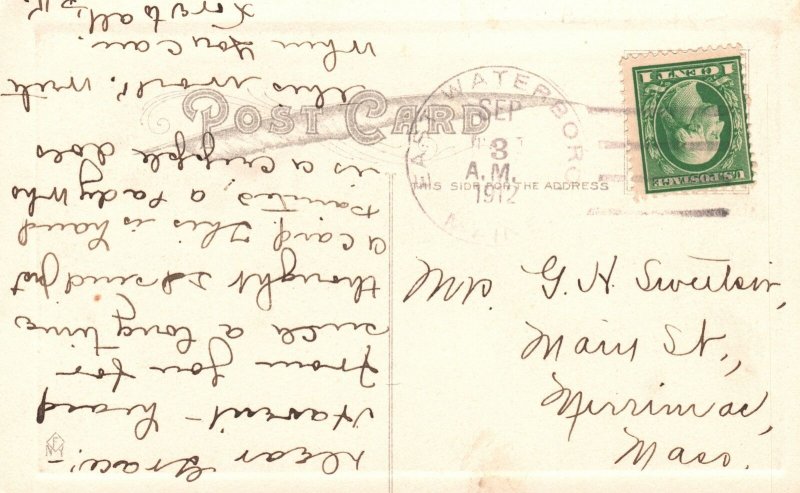 POST CARD
THIS SIDE FOR THE ADDRESS
EAST WATERBORO
SEP
3
A.M.
1912
U.S. POSTAGE
1 CENT 1
Mrs. G. H. Sweetsir,
Main St.,
Merrimac,
Mass.
Dear Grace:-
Haven't heard
from you for
such a long time
thought I'd send just
a card. This is hand
painted, a lady who
is a cripple does
this work. Write
when you can.
Love to all,